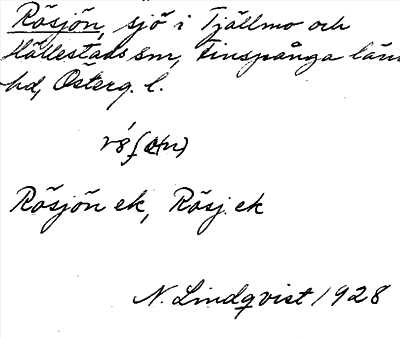 Rösjön, sjö i Tjällmo och
Hällestads sm, Finspånga län
hd, Österg. l.
Rösjön ek, Rösj. ek
N. Lindqvist 1928